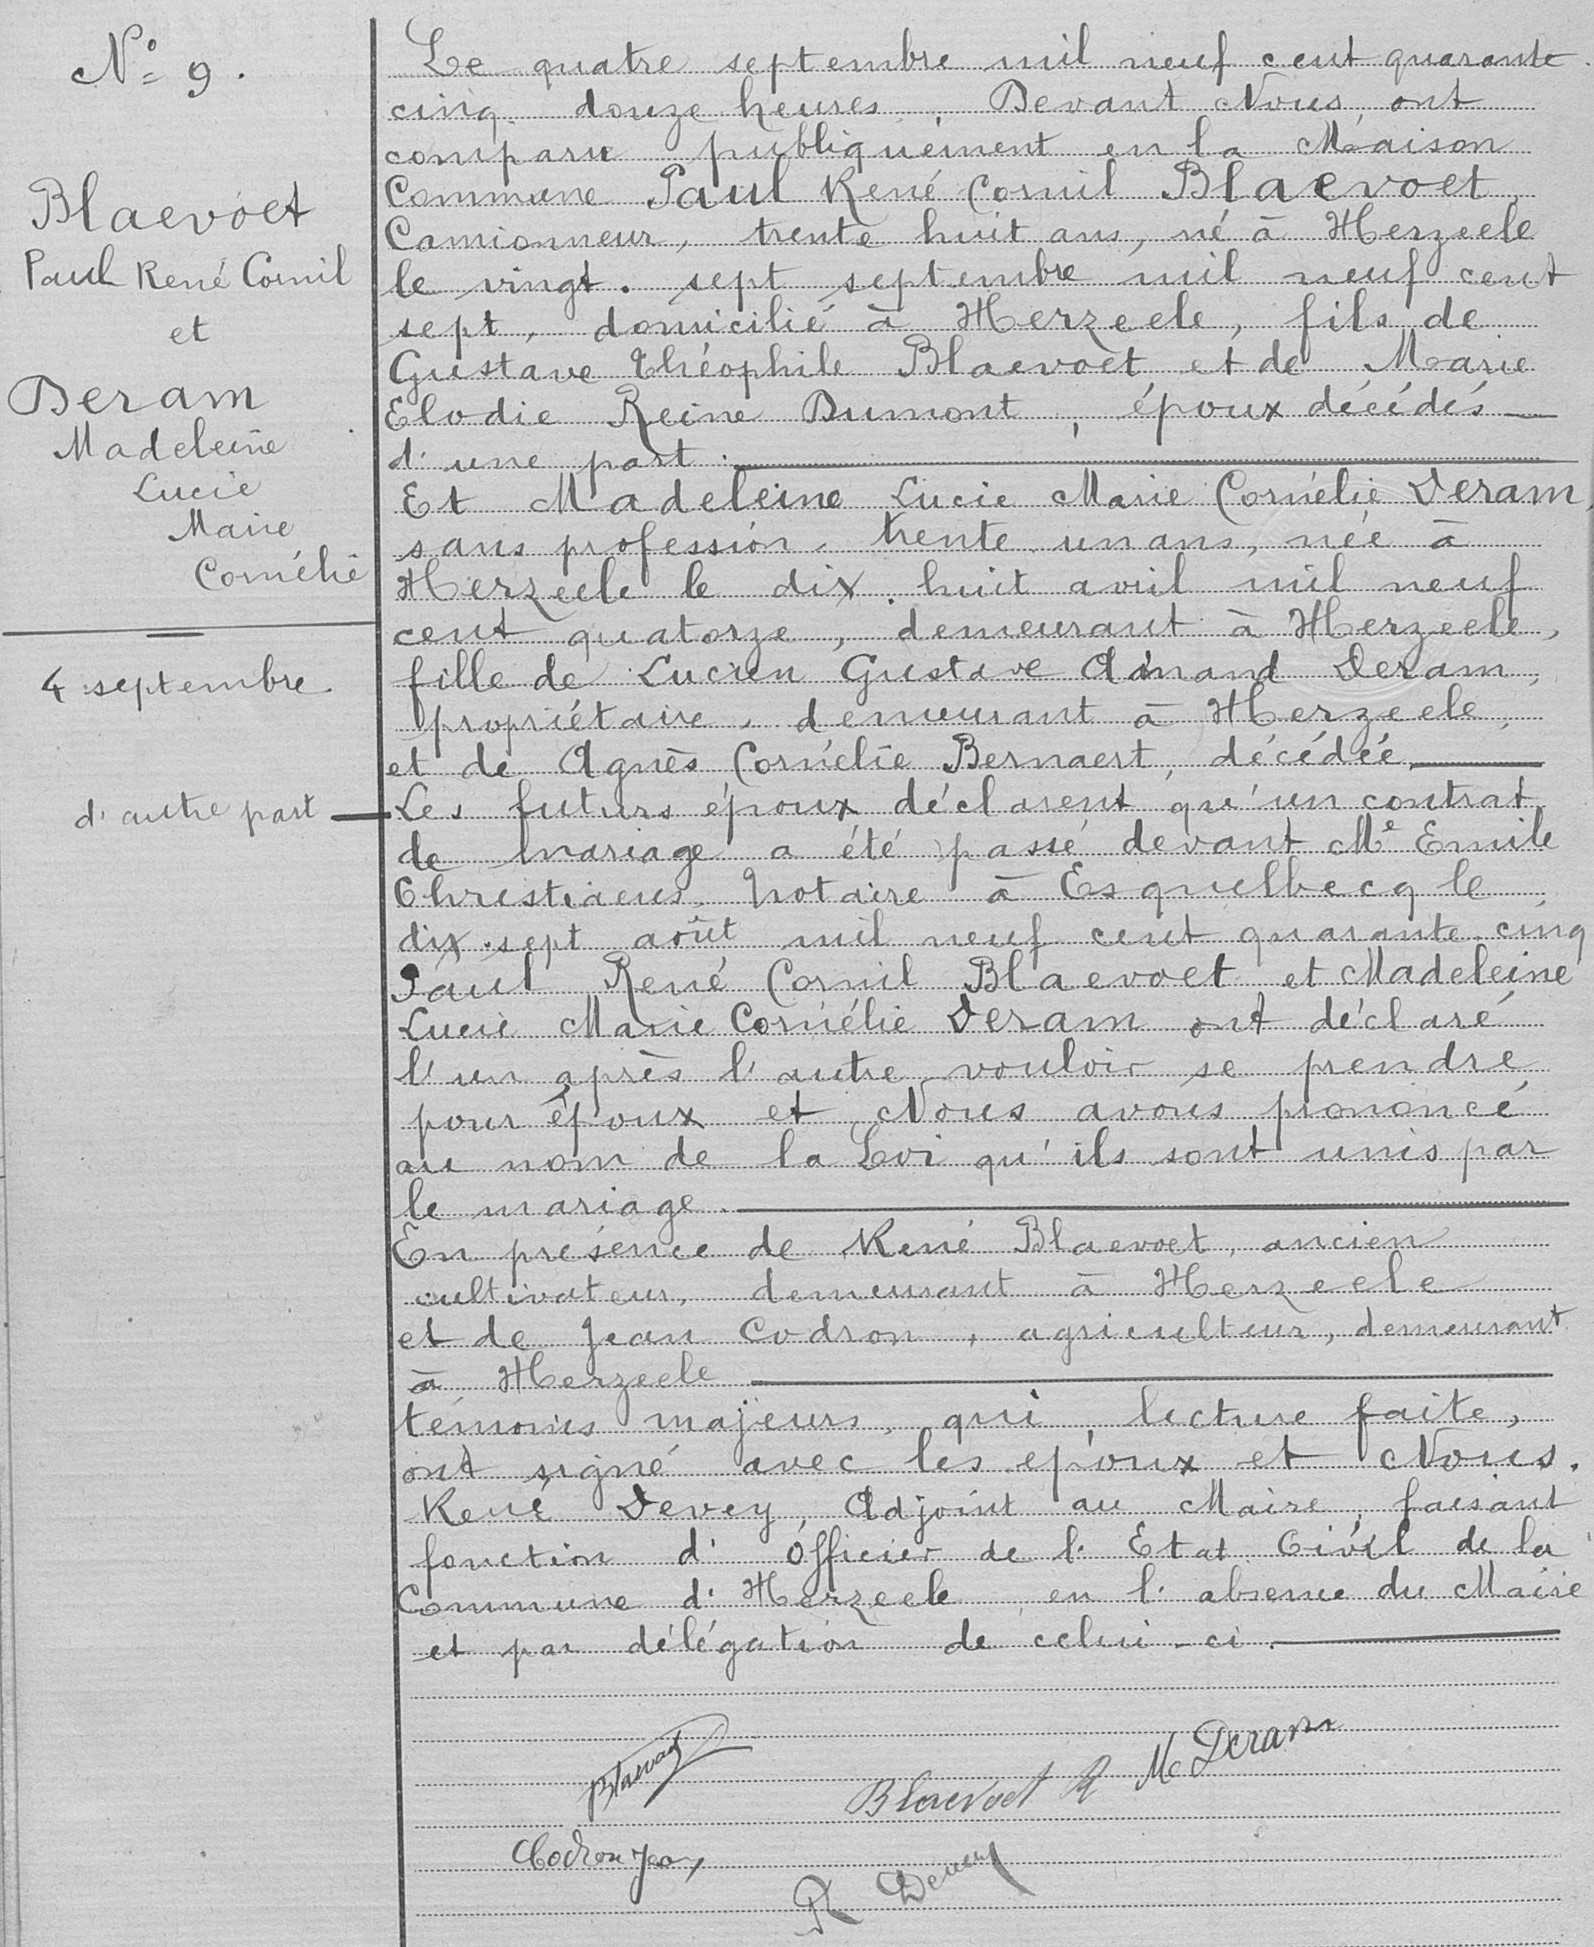 N° 9.
Blaevoet
Paul René Cornil
et
Deram
Madeleine
Lucie
Marie
Cornélie
4 septembre
d'autre part
Le quatre septembre mil neuf cent quarante
cinq douze heures, Devant Nous ont
comparu publiquement en la Maison
Commune Paul René Cornil Blaevoet,
Camionneur, trente huit ans, né à Herzeele
le vingt-sept septembre mil neuf cent
sept, domicilié à Herzeele, fils de
Gustave Théophile Blaevoet et de Marie
Elodie Reine Dumont, époux décédés
d'une part.
Et Madeleine Lucie Marie Cornélie Deram,
sans profession, trente un ans, née à
Herzeele le dix-huit avril mil neuf
cent quatorze, demeurant à Herzeele,
fille de Lucien Gustave Amand Deram,
propriétaire, demeurant à Herzeele,
et de Agnès Cornélie Bernaert, décédée,
Les futurs époux déclarent qu'un contrat
de mariage a été passé devant Me Emile
Christiaens, Notaire à Esquelbecq le
dix-sept août mil neuf cent quarante-cinq
Paul René Cornil Blaevoet et Madeleine
Lucie Marie Cornélie Deram ont déclaré
l'un après l'autre vouloir se prendre
pour époux et Nous avons prononcé
au nom de la Loi qu'ils sont unis par
le mariage.
En présence de René Blaevoet, ancien
cultivateur, demeurant à Herzeele
et de Jean Codron, agriculteur, demeurant
à Herzeele
témoins majeurs, qui, lecture faite,
ont signé avec les époux et Nous.
René Devey, Adjoint au Maire, faisant
fonction d'Officier de l'Etat Civil de la
Commune d'Herzeele, en l'absence du Maire
et par délégation de celui-ci.
Blaevoet
Blaevoet R
M Deram
Codron Jean
R Devey